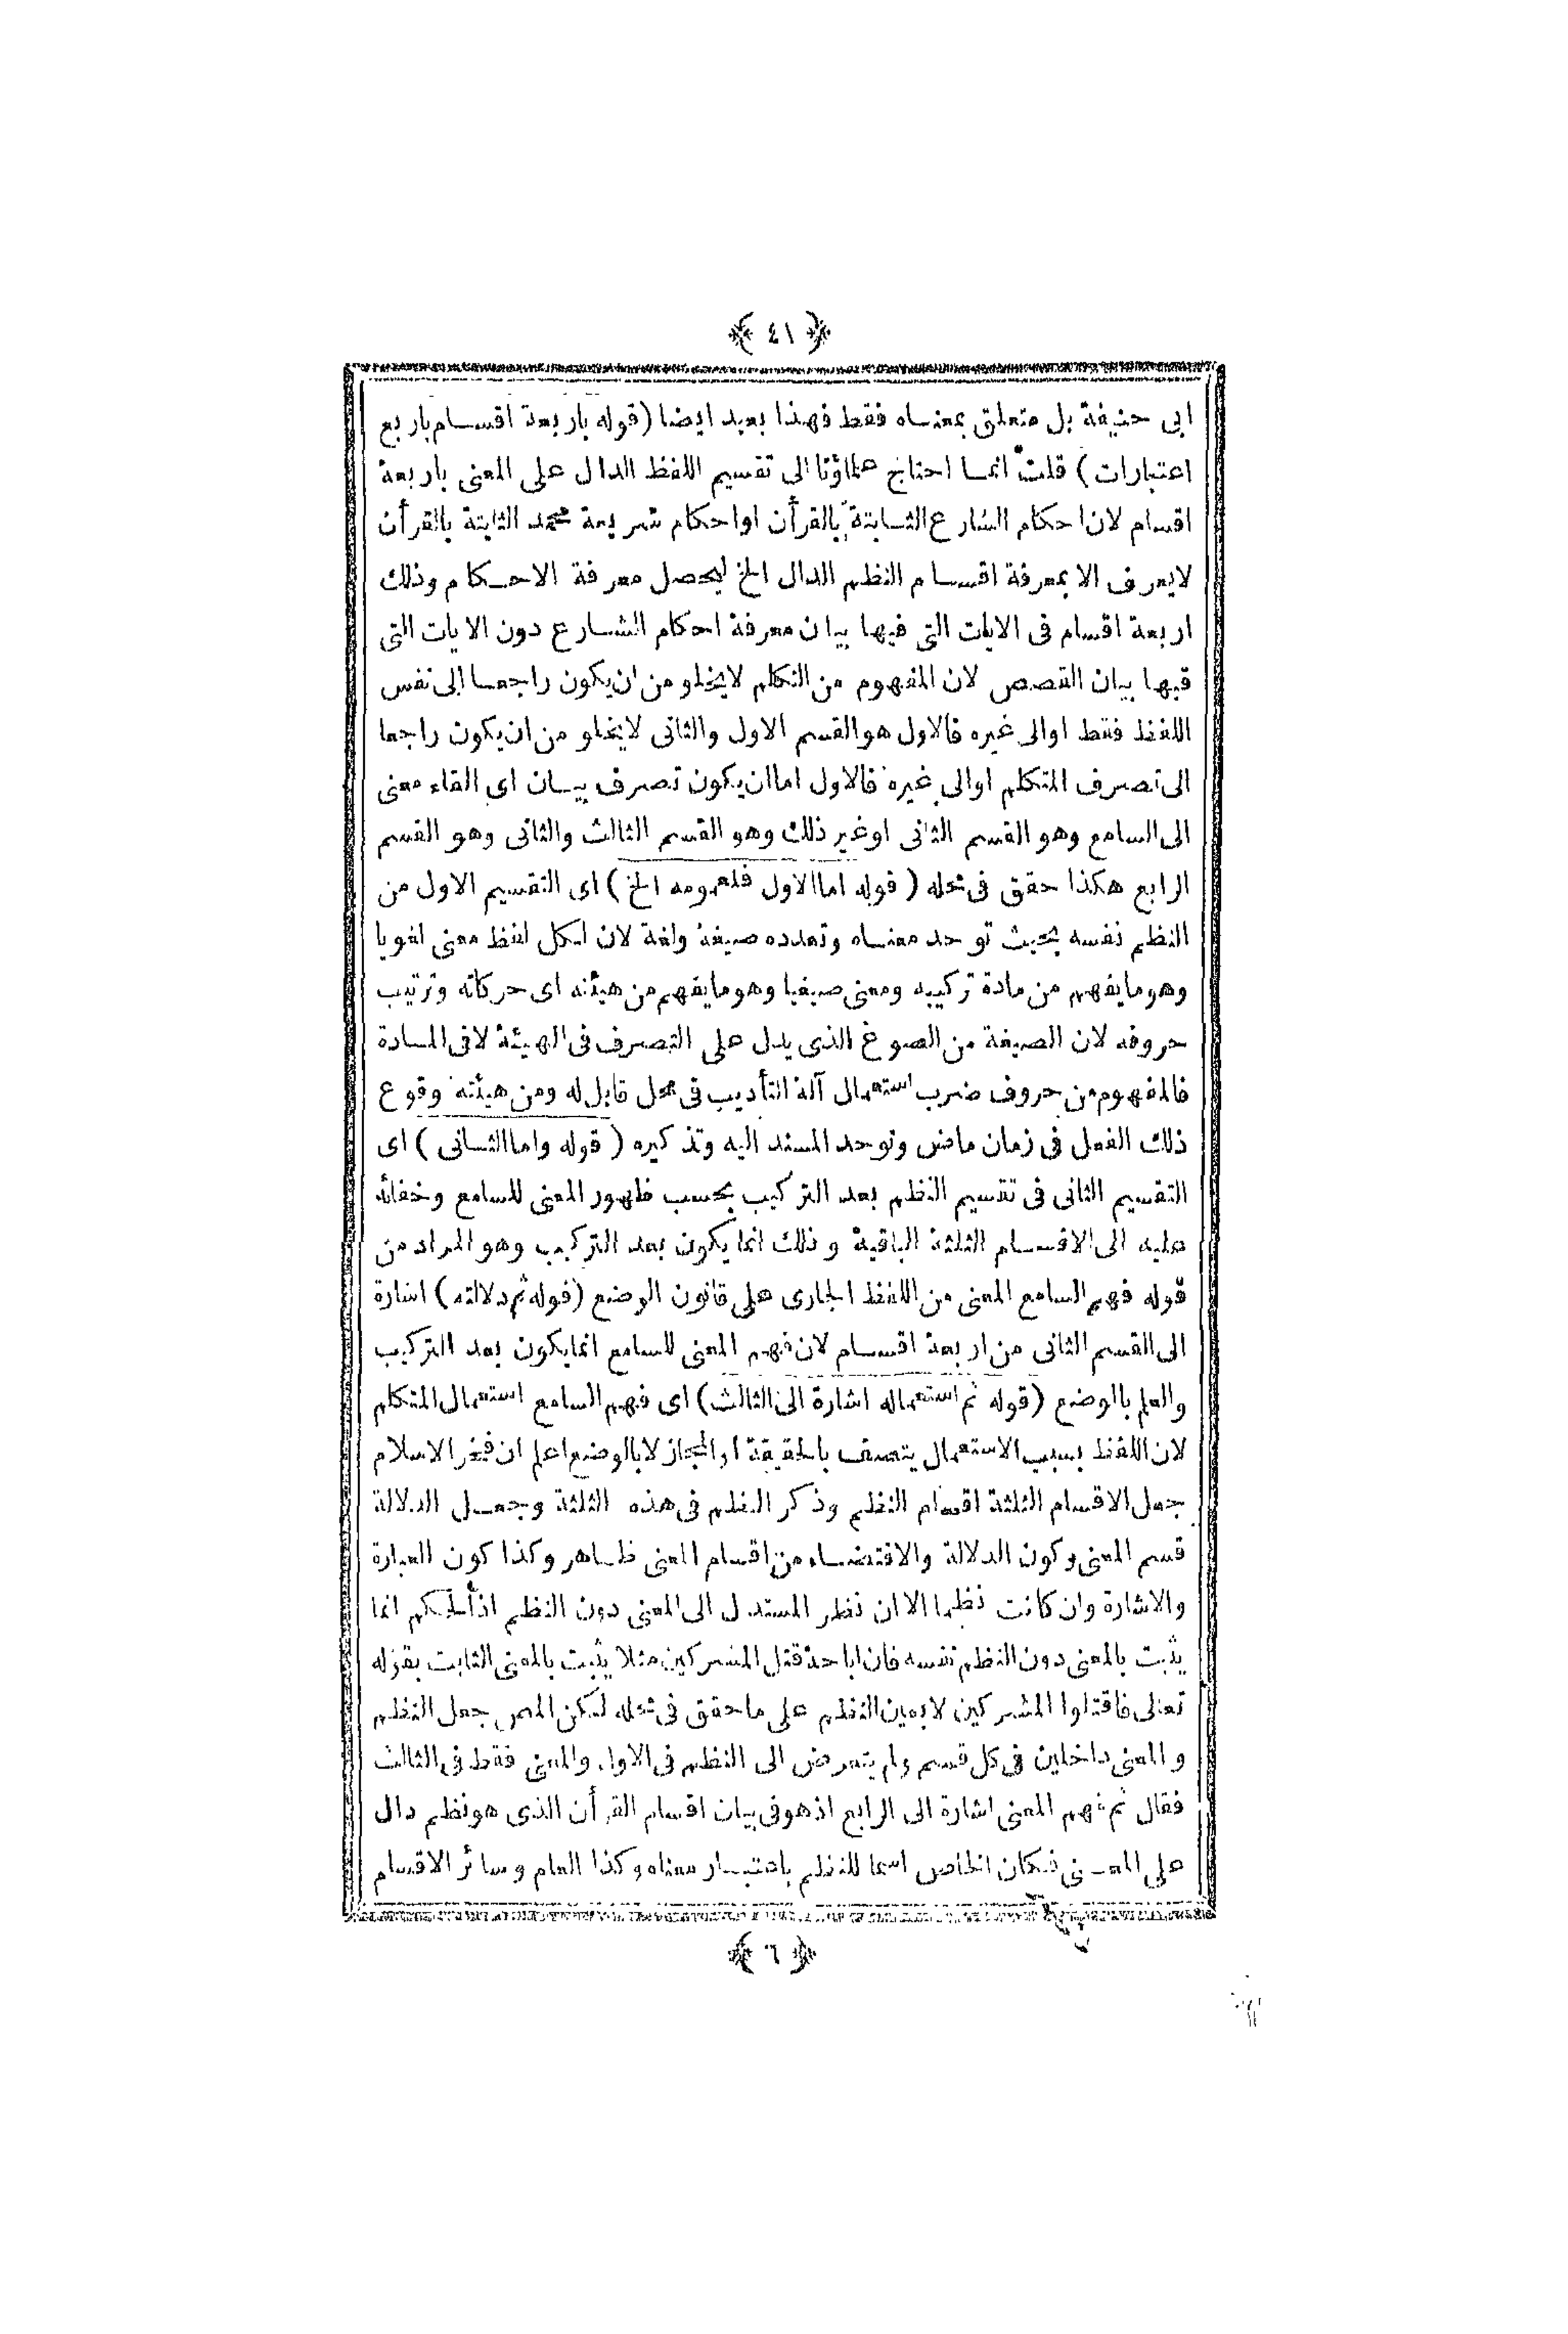 ﴿ ٤١ ﴾
ابى حنيفة بل متعلق بمعناه فقط فهذا بعيد ايضا (قوله باربعة اقسام باربع
اعتبارات) قلت انما احتاج علماؤنا الى تقسيم اللفظ الدال على المعنى باربعة
اقسام لان احكام الشارع الثابتة بالقرأن او احكام شريعة محمد الثابتة بالقرأن
لايعرف الا بمعرفة اقسام النظم الدال الخ ليحصل معرفة الاحكام وذلك
اربعة اقسام فى الايات التى فيها بيان معرفة احكام الشارع دون الايات التى
فيها بيان القصص لان المفهوم من التكلم لايخلو من ان يكون راجعا الى نفس
اللفظ فقط اوالى غيره فالاول هو القسم الاول والثانى لايخلو من ان يكون راجعا
الى تصرف المتكلم اوالى غيره فالاول اما ان يكون تصرف بيان اى القاء معنى
الى السامع وهو القسم الثانى اوغير ذلك وهو القسم الثالث والثانى وهو القسم
الرابع هكذا حقق فى محله (قوله اما الاول فلعمومه الخ) اى التقسيم الاول من
النظم نفسه بحيث توحد معناه وتعدده صيغة ولغة لان لكل لفظ معنى لغويا
وهو مايفهم من مادة تركيبه ومعنى صيغيا وهو مايفهم من هيئته اى حركاته وترتيب
حروفه لان الصيغة من الصوغ الذى يدل على التصرف فى الهيئة لا فى المادة
فالمفهوم من حروف ضرب استعمال آلة التأديب فى محل قابل له ومن هيئته وقوع
ذلك الفعل فى زمان ماض وتوحد المسند اليه وتذكيره (قوله واما الثانى) اى
التقسيم الثانى فى تقسيم النظم بعد التركيب بحسب ظهور المعنى للسامع وخفائه
عليه الى الاقسام الثلثة الباقية وذلك انما يكون بعد التركيب وهو المراد من
قوله فهم السامع المعنى من اللفظ الجارى على قانون الوضع (قوله ثم دلالته) اشارة
الى القسم الثانى من اربعة اقسام لان فهم المعنى للسامع انما يكون بعد التركيب
والعلم بالوضع (قوله ثم استعماله اشارة الى الثالث) اى فهم السامع استعمال المتكلم
لان اللفظ بسبب الاستعمال يتصف بالحقيقة او المجاز لا بالوضع اعلم ان فخر الاسلام
جعل الاقسام الثلثة اقسام النظم وذكر النظم فى هذه الثلثة وجعل الدلالة
قسم المعنى وكون الدلالة والاقتضاء من اقسام المعنى ظاهر وكذا كون العبارة
والاشارة وان كانت نظما الا ان نظر المستدل الى المعنى دون النظم اذ الحكم انما
يثبت بالمعنى دون النظم نفسه فان اباحة قتل المشركين مثلا يثبت بالمعنى الثابت بقوله
تعالى فاقتلوا المشركين لا بعين النظم على ماحقق فى محله لكن المص جعل النظم
والمعنى داخلين فى كل قسم ولم يتعرض الى النظم فى الاول والمعنى فقط فى الثالث
فقال ثم فهم المعنى اشارة الى الرابع اذ هو فى بيان اقسام القرأن الذى هو نظم دال
على المعنى فكان الخاص اسما للنظم باعتبار معناه وكذا العام وسائر الاقسام
﴿ ٦ ﴾